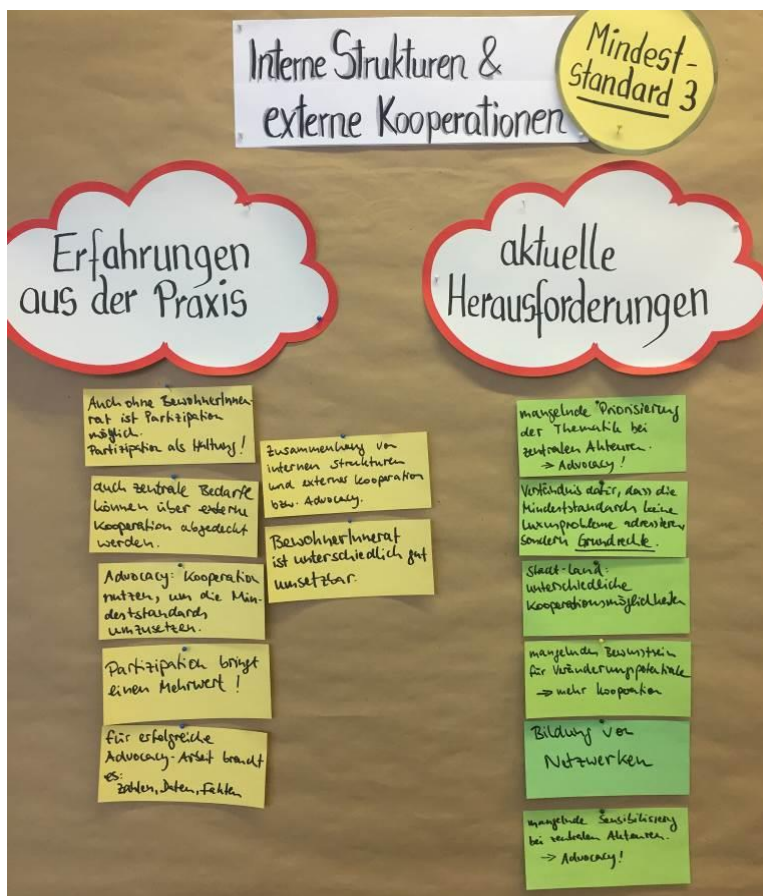 Interne Strukturen &
externe Kooperationen
Mindest-
standard 3
Erfahrungen
aus der Praxis
Auch ohne BewohnerInnen-
rat ist Partizipation
möglich.
Partizipation als Haltung!
auch zentrale Bedarfe
können über externe
Kooperation abgedeckt
werden.
Advocacy: Kooperation
nutzen, um die Min-
deststandards
umzusetzen.
Partizipation bringt
einen Mehrwert!
für erfolgreiche
Advocacy-Arbeit braucht
es:
Zahlen, Daten, Fakten
Zusammenhang von
internen Strukturen
und externer Kooperation
bzw. Advocacy.
BewohnerInnenrat
ist unterschiedlich gut
umsetzbar.
aktuelle
Herausforderungen
mangelnde Priorisierung
der Thematik bei
zentralen Akteuren.
→ Advocacy!
Verständnis dafür, dass die
Mindeststandards keine
Luxusprobleme adressieren,
sondern Grundrechte.
Stadt-Land:
unterschiedliche
Kooperationsmöglichkeiten
mangelndes Bewusstsein
für Veränderungspotentiale
→ mehr Kooperation
Bildung von
Netzwerken
mangelnde Sensibilisierung
bei zentralen Akteuren.
→ Advocacy!